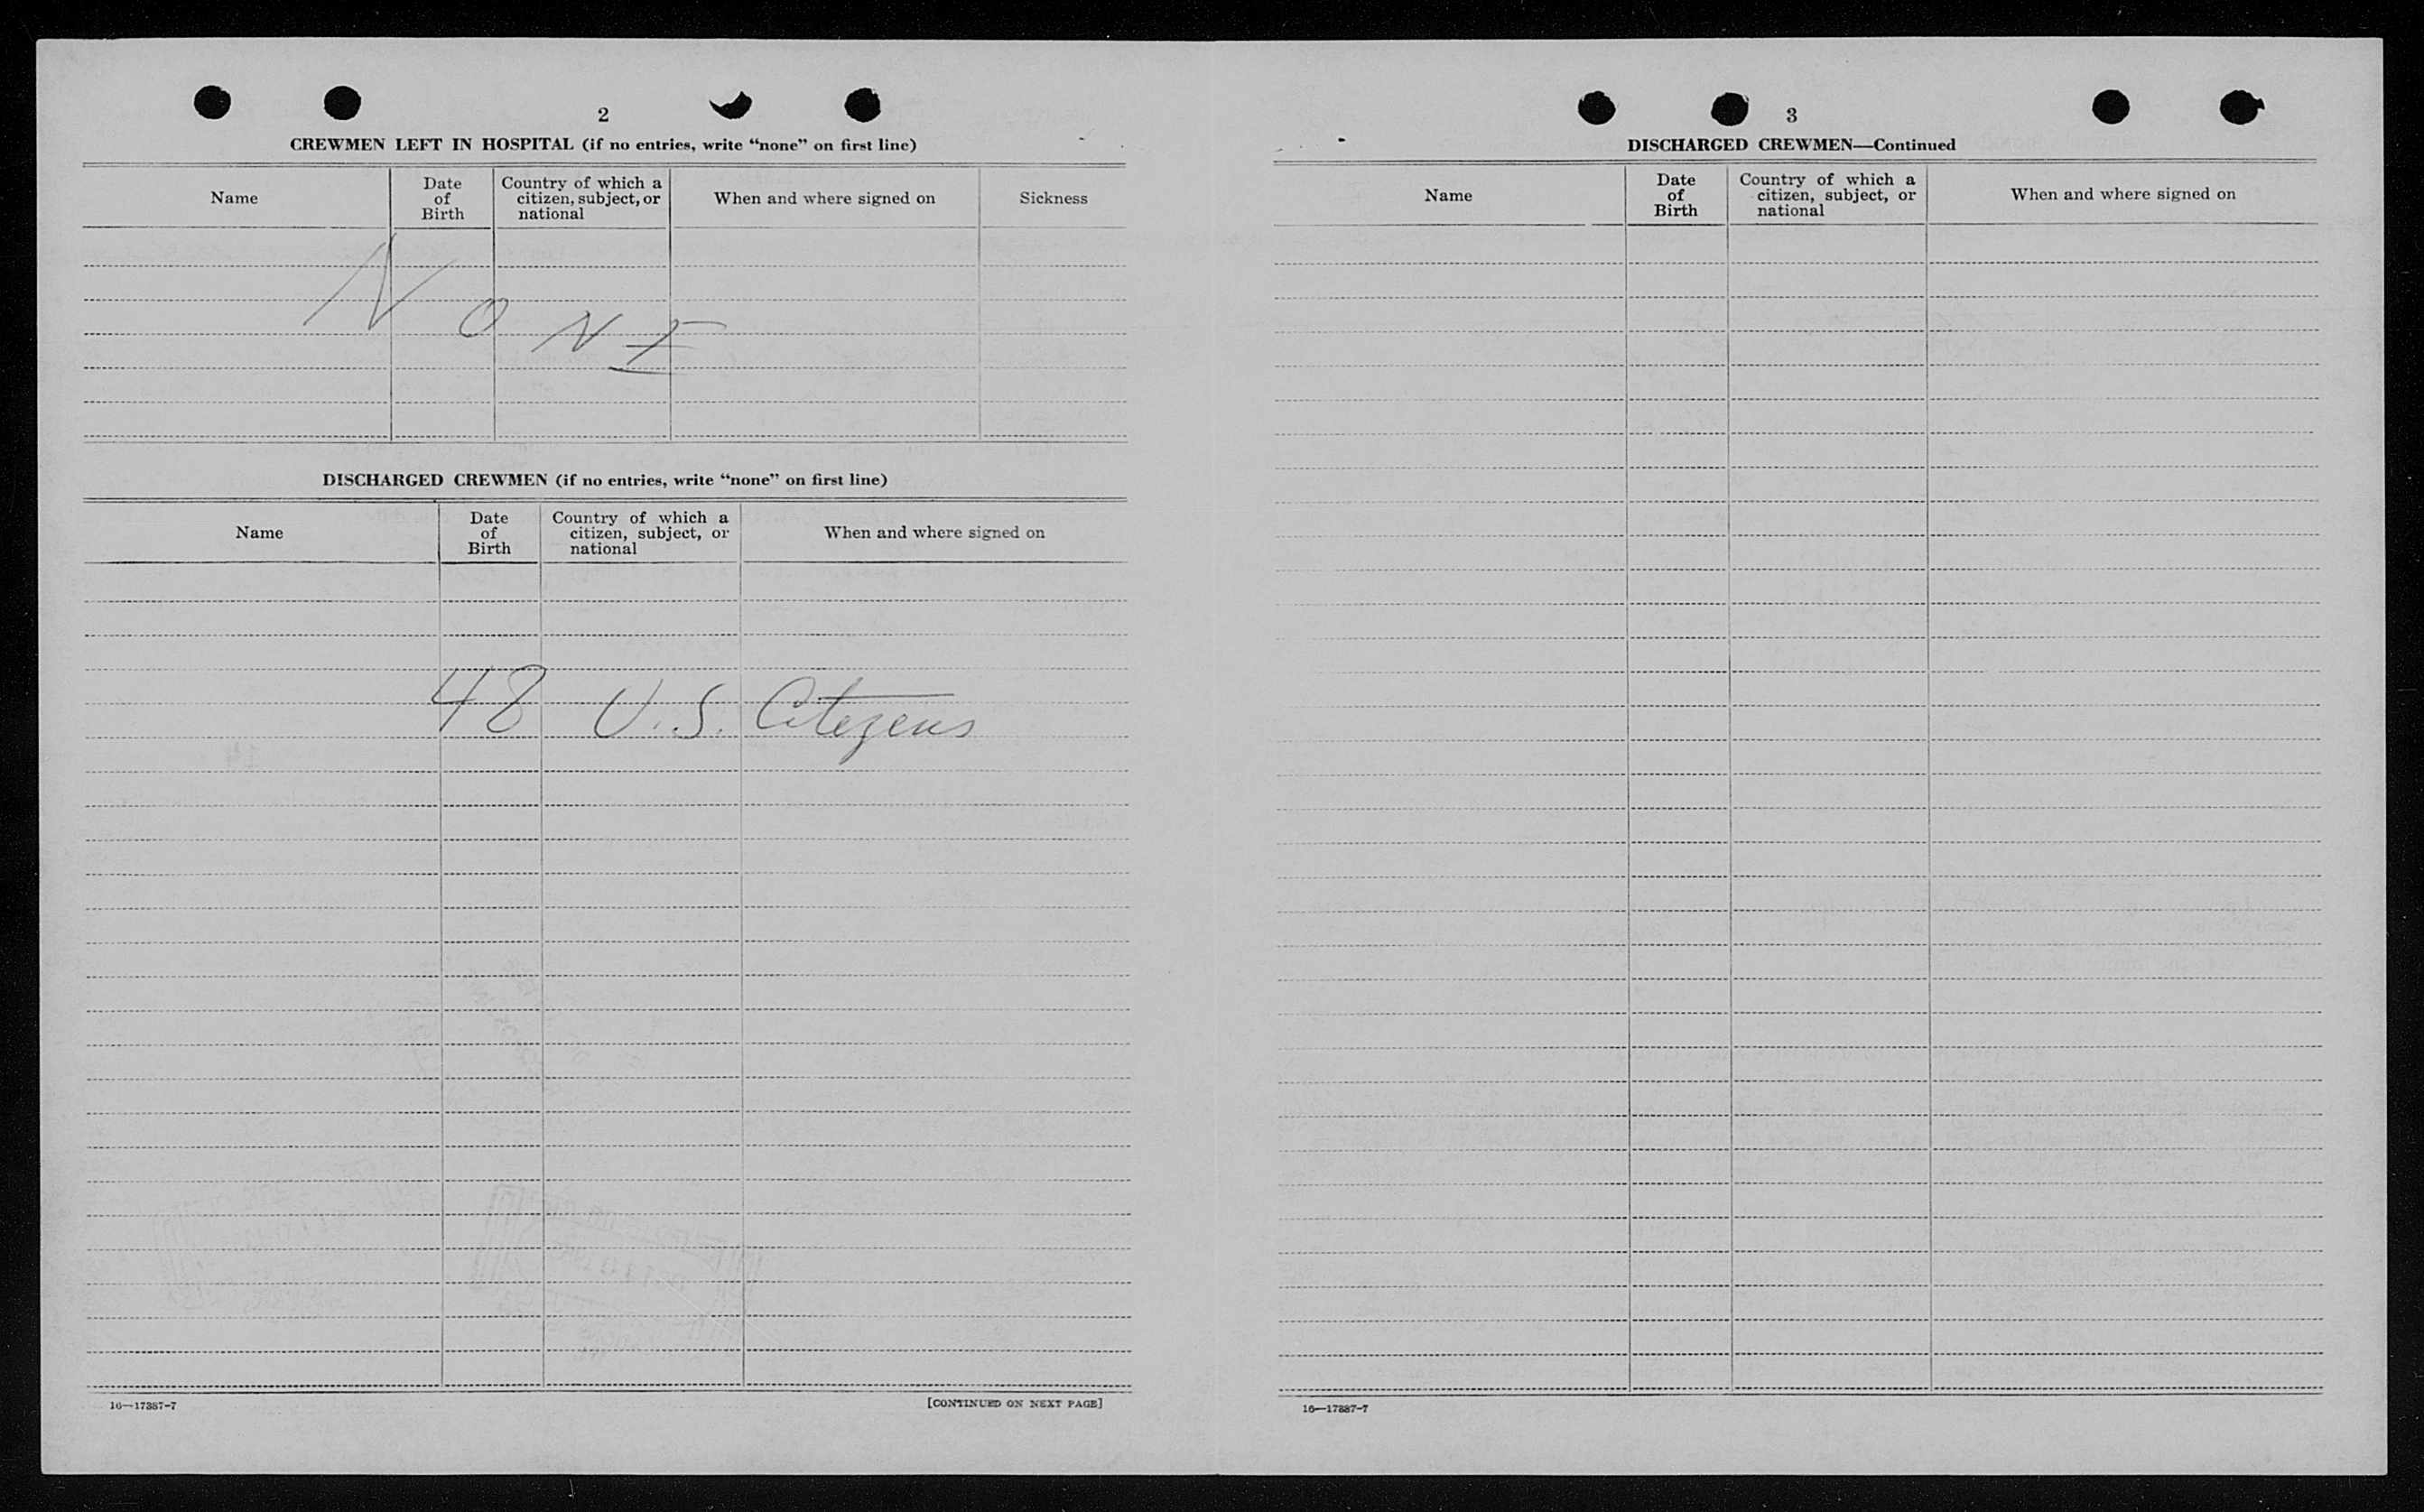 2
CREWMEN LEFT IN HOSPITAL (if no entries, write “none” on first line)
Name
Date of Birth
Country of which a citizen, subject, or national
When and where signed on
Sickness
NONE
DISCHARGED CREWMEN (if no entries, write “none” on first line)
Name
Date of Birth
Country of which a citizen, subject, or national
When and where signed on
48 U.S. Citezens
16—17387-7
[CONTINUED ON NEXT PAGE]
3
DISCHARGED CREWMEN—Continued
Name
Date of Birth
Country of which a citizen, subject, or national
When and where signed on
16—17387-7